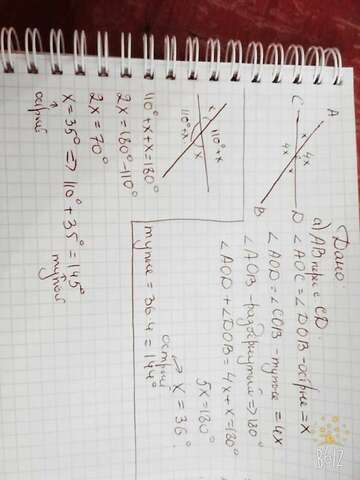 Дано
а) AB перес CD.
∠AOC = ∠DOB - острые = x
∠AOD = ∠COB - тупые = 4x
∠AOB - развёрнутый => 180°
∠AOD + ∠DOB = 4x + x = 180°
5x = 180°
x = 36°
острый
тупые = 36·4 = 144°
A
C
D
B
x
4x
4x
x
110°+x
x
110°+x
x
110° + x + x = 180°
2x = 180° - 110°
2x = 70°
x = 35° => 110° + 35° = 145°
острый
тупой